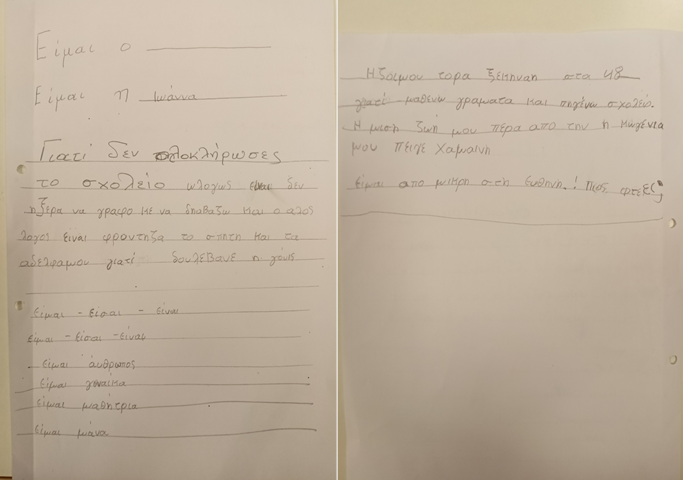 Είμαι ο
Είμαι η Ιωάννα
Γιατί δεν ολοκλήρωσες
το σχολείο ωλογως δεν
ηξερα να γραφο με να διαβαζω και ο αλος
λογος ειναι φροντηζα το σπητη και τα
αδελφαμου γιατί δουλέβανε η γόνις
είμαι - είσαι - είναι
είμαι - είσαι - είναι
- είμαι άνθρωπος
είμαι γυναίκα
είμαι μαθήτρια
είμαι μάνα
Η ζοιμου τορα ξεκηναη στα 48
γιατί μαθενω γραματα και πηγένω σχολείο.
Η μιση ζωή μου πέρα απο την η κωγένια
μου πειγε χαμαινη
είμαι απο μικρη στη ευθηνη.! Πιος φτεει;